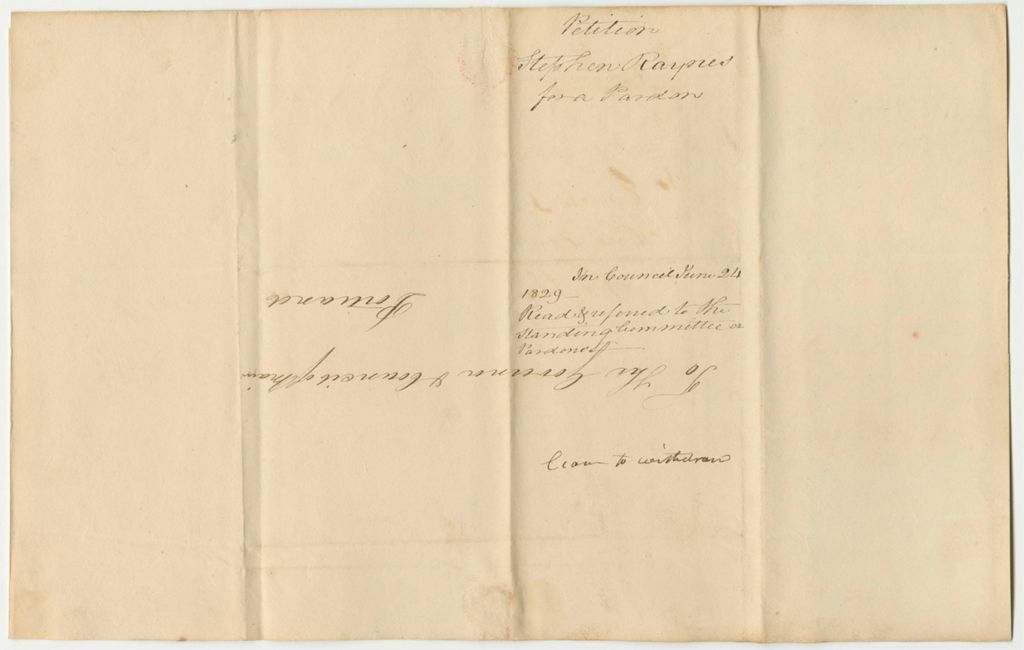 Petition
Stephen Raynes
for a Pardon
In Council June 24
1829
Read & referred to the
Standing Committee o
Pardons
To The Govenor & Council of Main
Portland
to withdraw